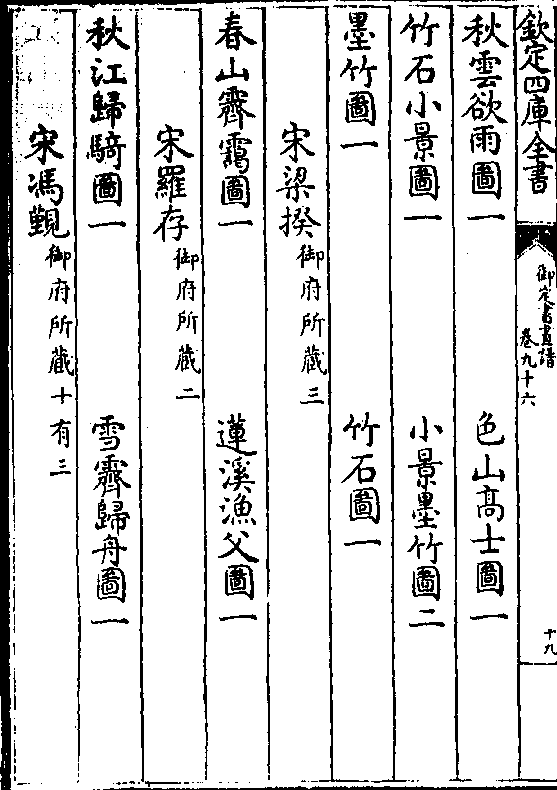 欽定四庫全書
御定書畫譜
卷九十六
十九
秋雲欲雨圖一 色山高士圖一
竹石小景圖一 小景墨竹圖二
墨竹圖一 竹石圖一
宋梁揆御府所藏三
春山霽靄圖一 蓮溪漁父圖一
宋羅存御府所藏二
秋江歸騎圖一 雪霽歸舟圖一
宋馮覲御府所藏十有三